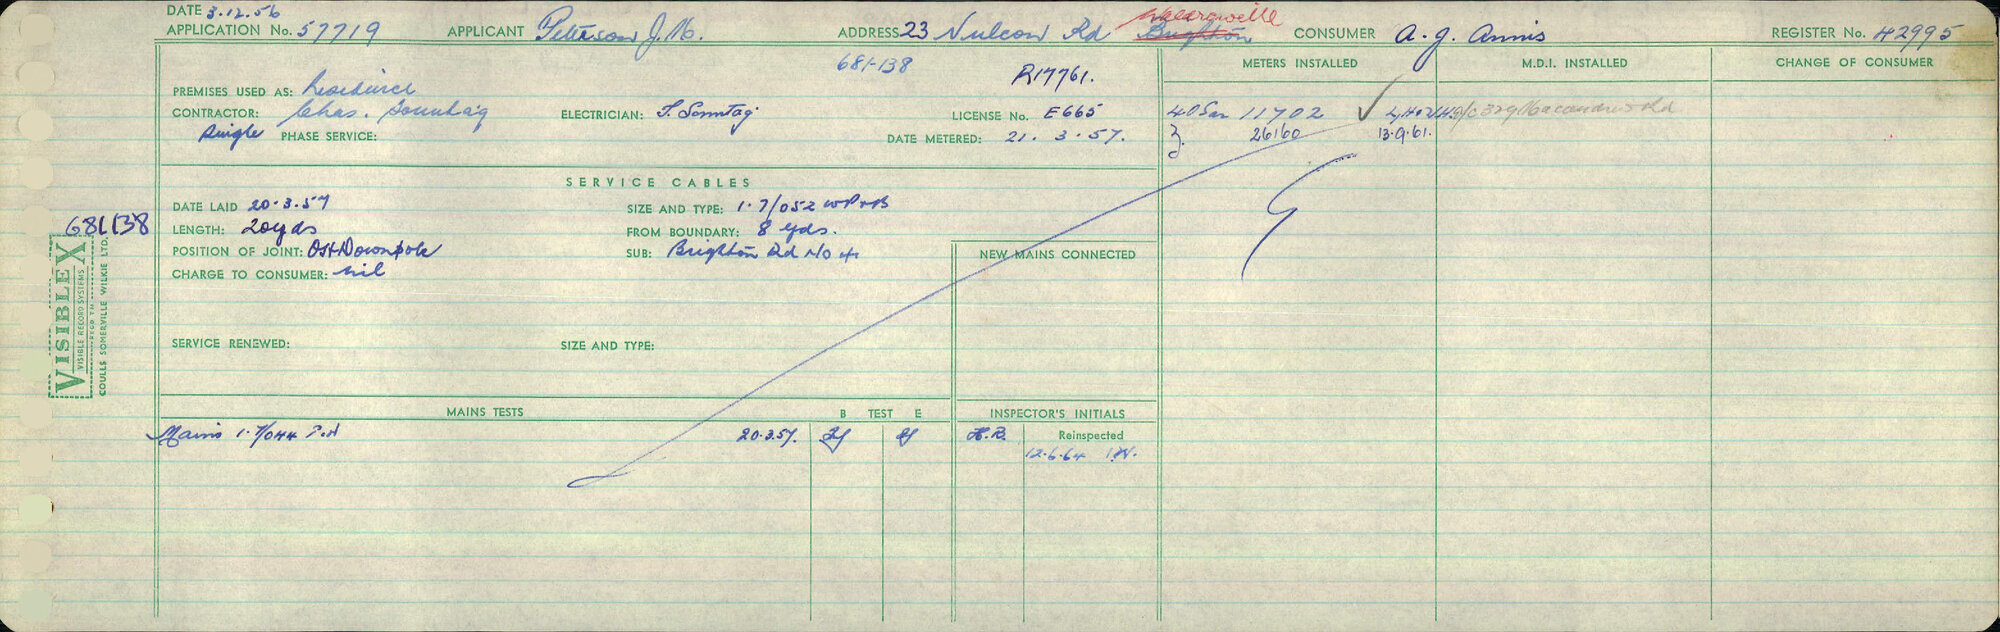 DATE 3.12.56
APPLICATION No. 57719 APPLICANT Peterson J.M. ADDRESS 23 Vulcon Rd Brighton CONSUMER A. J. Annis REGISTER No. 42995
681-138 R17761.
PREMISES USED AS:
CONTRACTOR: Chas. Sonntag ELECTRICIAN: T. Sonntag LICENSE No. E665
Single PHASE SERVICE: DATE METERED: 21. 3. 57.
METERS INSTALLED M.D.I. INSTALLED CHANGE OF CONSUMER
11702 ✓
26160 13.9.61.
SERVICE CABLES
DATE LAID 20.3.57 SIZE AND TYPE: 1.7/052
LENGTH: 20yds FROM BOUNDARY: 8 yds.
POSITION OF JOINT: OH Downpole SUB: Brighton Rd No 4
CHARGE TO CONSUMER: nil
NEW MAINS CONNECTED
SERVICE RENEWED: SIZE AND TYPE:
MAINS TESTS B TEST E INSPECTOR'S INITIALS
Mains 1.7/044 20.3.57. H.B. Reinspected
12.6.64
681138
VISIBLEX
VISIBLE RECORD SYSTEMS
REGD TM
COULLS SOMERVILLE WILKIE LTD.